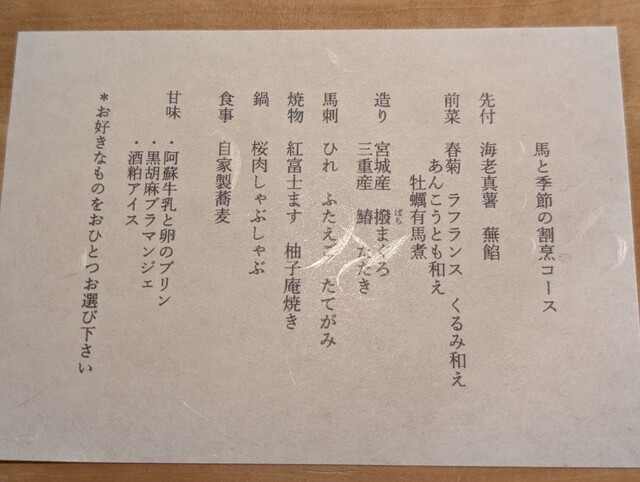 馬と季節の割烹コース
先付 海老真薯 蕪餡
前菜 春菊 ラフランス くるみ和え
あんこうとも和え
牡蠣有馬煮
造り 宮城産 撥まぐろ
ばち
三重産 鰆 たたき
馬刺 ひれ ふたえご たてがみ
焼物 紅富士ます 柚子庵焼き
鍋 桜肉しゃぶしゃぶ
食事 自家製蕎麦
甘味 ・阿蘇牛乳と卵のプリン
・黒胡麻ブラマンジェ
・酒粕アイス
*お好きなものをおひとつお選び下さい